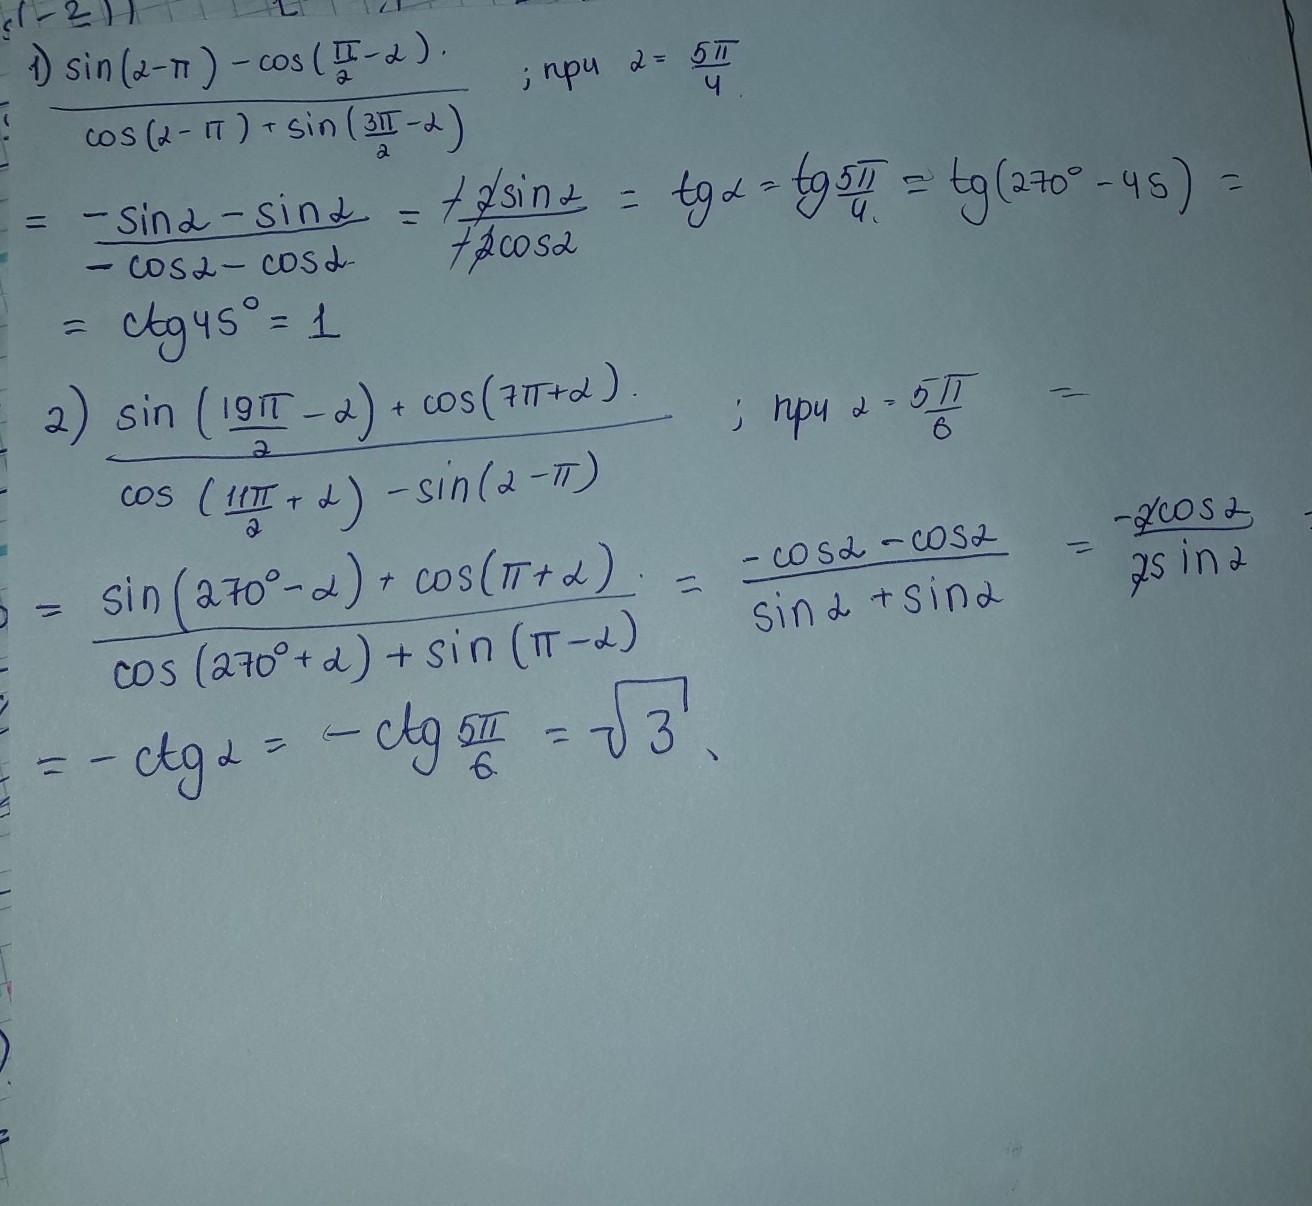 1) sin(α-π) - cos(π/2 - α). ; при α = 5π/4
cos(α-π) + sin(3π/2 - α)
= -sinα - sinα / -cosα - cosα = +2sinα / +2cosα = tgα = tg 5π/4 = tg(270° - 45) =
= ctg45° = 1
2) sin(19π/2 - α) + cos(7π+α). ; при α = 5π/6 =
cos(11π/2 + α) - sin(α-π)
= sin(270°-α) + cos(π+α). / cos(270°+α) + sin(π-α) = -cosα - cosα / sinα + sinα = -2cosα / 2sinα
= -ctgα = -ctg 5π/6 = √3.